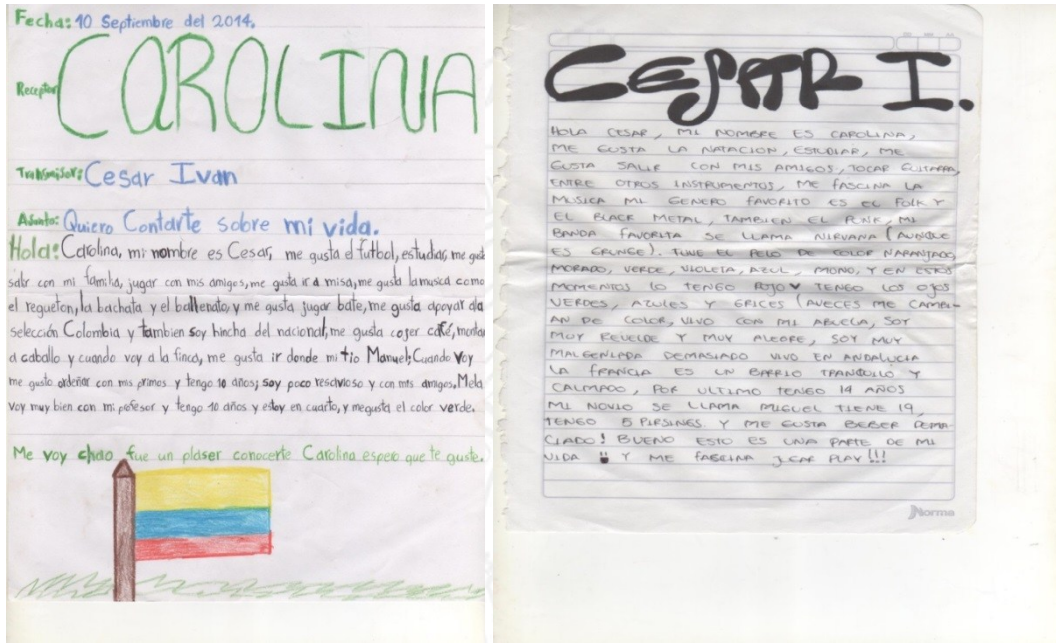 Fecha: 10 Septiembre del 2014.
Receptor: CAROLINA
Transmisor: Cesar Ivan
Asunto: Quiero Contarte sobre mi vida.
Hola: Carolina, mi nombre es Cesar, me gusta el futbol, estudiar, me gusta
salir con mi familia, jugar con mis amigos, me gusta ir a misa, me gusta la musca como
el regueton, la bachata y el ballenato, y me gusta jugar bate, me gusta apoyar ala
selección Colombia y tambien soy hincha del nacional, me gusta cojer café, montar
a caballo y cuando voy a la finca, me gusta ir donde mi tio Manuel; Cuando voy
me gusta ordeñar con mis primos y tengo 10 años; soy poco resavioso y con mis amigos. Mela
voy muy bien con mi pofesor y tengo 10 años y estoy en cuarto, y megusta el color verde.
Me voy chao fue un plaser conocerte Carolina espero que te guste.
CESAR I.
HOLA CESAR, MI NOMBRE ES CAROLINA,
ME GUSTA LA NATACION, ESTUDIAR, ME
GUSTA SALIR CON MIS AMIGOS, TOCAR GUITARRA,
ENTRE OTROS INSTRUMENTOS, ME FASCINA LA
MUSICA MI GENERO FAVORITO ES EL FOLK Y
EL BLACK METAL, TAMBIEN EL PUNK, MI
BANDA FAVORITA SE LLAMA NIRVANA (AUNQUE
ES GRUNGE). TUVE EL PELO DE COLOR NARANJADO
MORADO, VERDE, VIOLETA, AZUL, MONO, Y EN ESTOS
MOMENTOS LO TENGO ROJO TENGO LOS OJOS
VERDES, AZULES Y GRICES (AVECES ME CAMBI-
AN DE COLOR, VIVO CON MI ABUELA, SOY
MUY REVELDE Y MUY ALEGRE, SOY MUY
MALGENIADA DEMASIADO VIVO EN ANDALUCIA
LA FRANCIA ES UN BARRIO TRANQUILO Y
CALMADO, POR ULTIMO TENGO 14 AÑOS
MI NOVIO SE LLAMA MIGUEL TIENE 19,
TENGO 5 PIRSINES. Y ME GUSTA BEBER DEMA-
CIADO! BUENO ESTO ES UNA PARTE DE MI
VIDA !! Y ME FASCINA JUGAR PLAY!!!
Norma